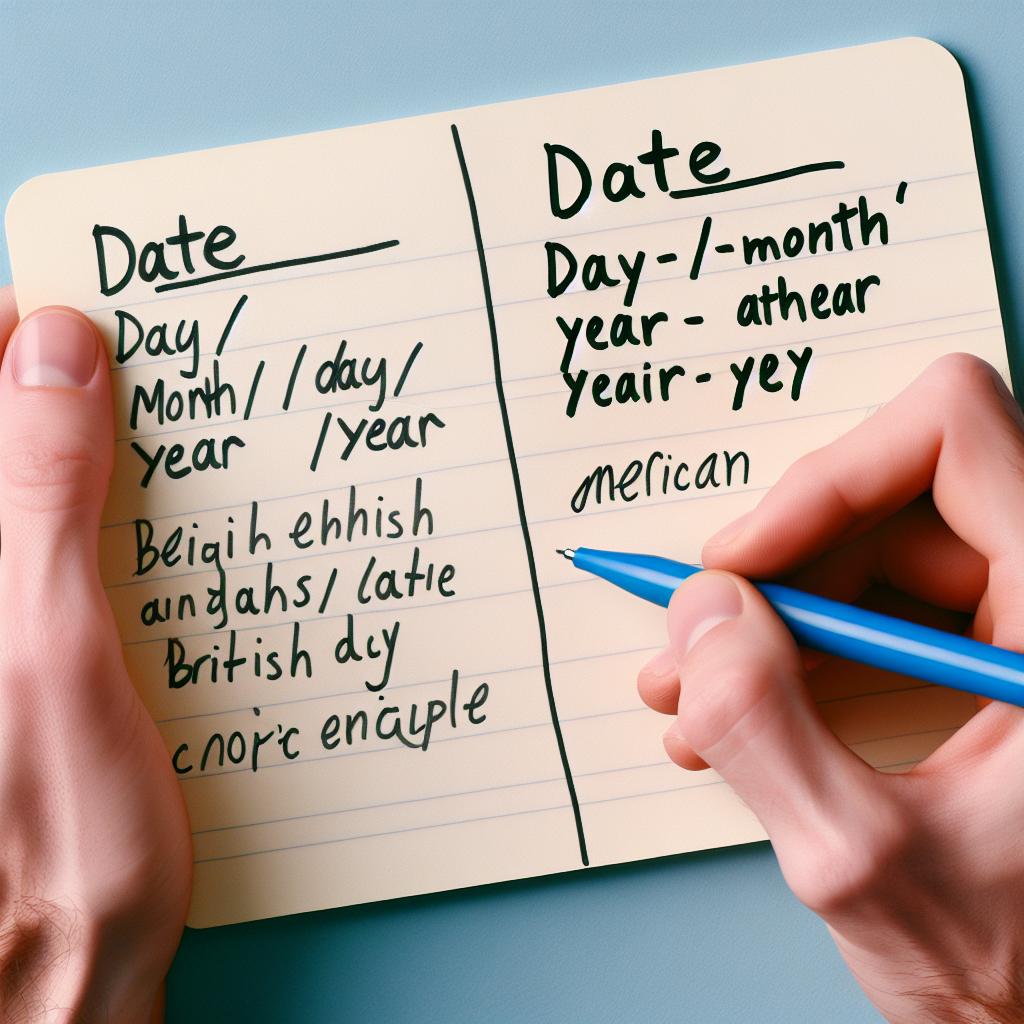 Date
Day /
Month / / day /
year / year
Beigih ehhish
aindahs / latie
British dcy
cnoric enicuple
Date
Day - / - month'
year - athear
yeair - yey
merican